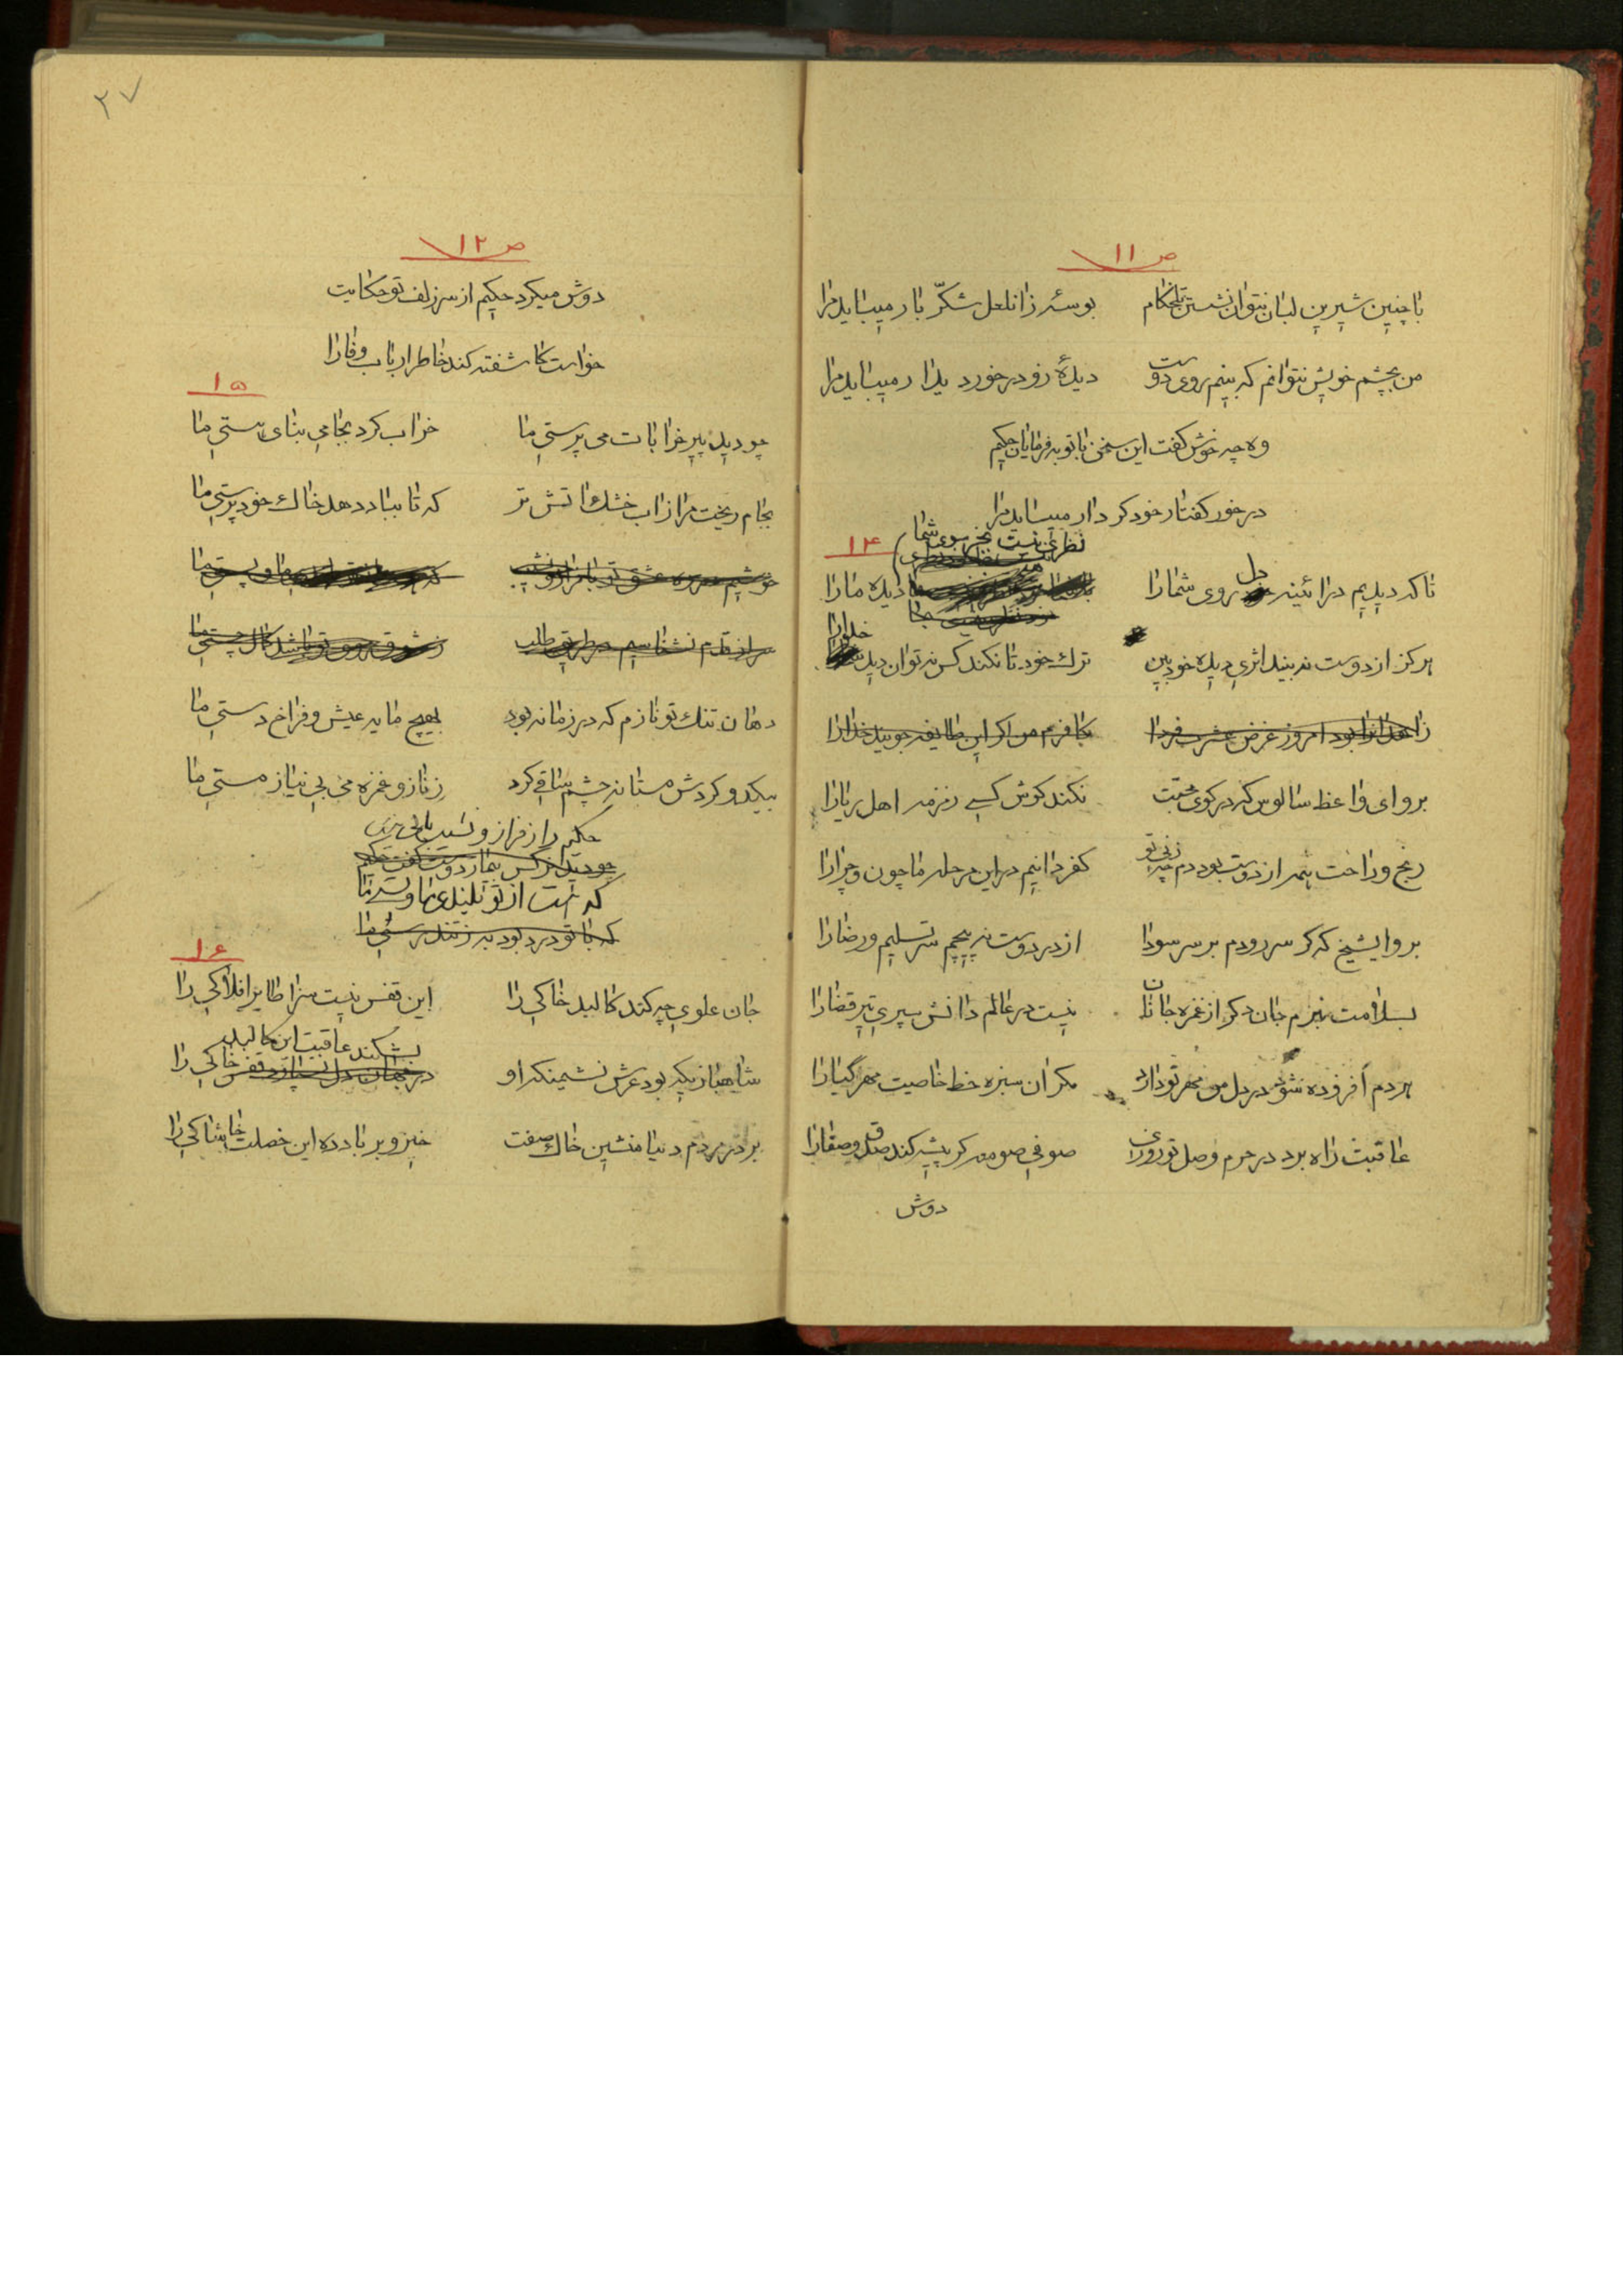 ص ۱۱
با چنین شیرین لبان نتوان نشستن تلخکام بوسهٔ زان لعل شکّر بار میباید مرا
من بچشم خویش نتوانم که بینم روی دوست دیدهٔ زو در خورد یدار میباید مرا
وه چه خوش گفت این سخن با تو بفرمایان حکیم
در خور گفتار خود کردار میباید مرا
۱۴
نظری نیست بجز سوی شما
تا که دیدیم در ائینه دل روی شما را دیده ما را
هرگز از دوست نه بیند اثری دیده خود بین ترك خود تا نکند کس نتوان دید خدا را
زاهدان را بود امروز غرض عشرت فردا کافرم من اگر این طایفه جویند خدا را
برو ای واعظ سالوس که در کوی محبت نکند گوش کسی زمزمه اهل ریا را
رنج و راحت همه از دوست بود دم چه زنی تو کفر دانیم در این مرحله ما چون و چرا را
برو ایشیخ که گر سر رودم بر سر سودا از در دوست نه پیچم سر تسلیم و رضا را
بسلامت نبرم جان دگر از غمزه جانان نیست در عالم دانش سپری تیر قضا را
هر دم افزوده شود در دل من مهر تو دارد مگر آن سبزه خط خاصیت مهر گیا را
عاقبت راه برد در حرم وصل تو روزی صوفی صومعه گر پیشه کند صدق و صفا را
دوش
۲۷
ص ۱۲
دوش میکرد حکیم از سر زلف تو حکایت
خواست کاشفته کند خاطر ارباب وفا را
۱۵
چو دید پیر خرابات می پرستی ما خراب کرد بجامی بنای هستی ما
بجام ریخت مرا زاب خشك اتش تر که تا بباد دهد خاك خود پرستی ما
خوشیم در ره عشق تو با فراز و نشیب
سر از قدم نشناسیم در طریق طلب ز شوق روی تو باشد کمال چستی ما
دهان تنك تو نازم که در زمانه بود بهیچ مایه عیش و فراخ دستی ما
بیکدو گردش مستانه چشم ساقی کرد ز ناز و غمزه می بی نیاز مستی ما
حکیم راز فراز و نشیب
چو دید نرگس بیمار دوست گفت حکیم
که هست از تو بلندی ما و پستی ما
که با تو درد بود به ز تندرستی ما
۱۶
جان علوی چه کند کالبد خاکی را این قفس نیست سزا طایر افلاکی را
بشکند عاقبت این کالبد
شاهبازیکه بود عرش نشیمنگه او در جهان دل قفس خاکی را
بر در مردم دنیا منشین خاك صفت خیز و بر باد ده این خصلت خاشاکی را